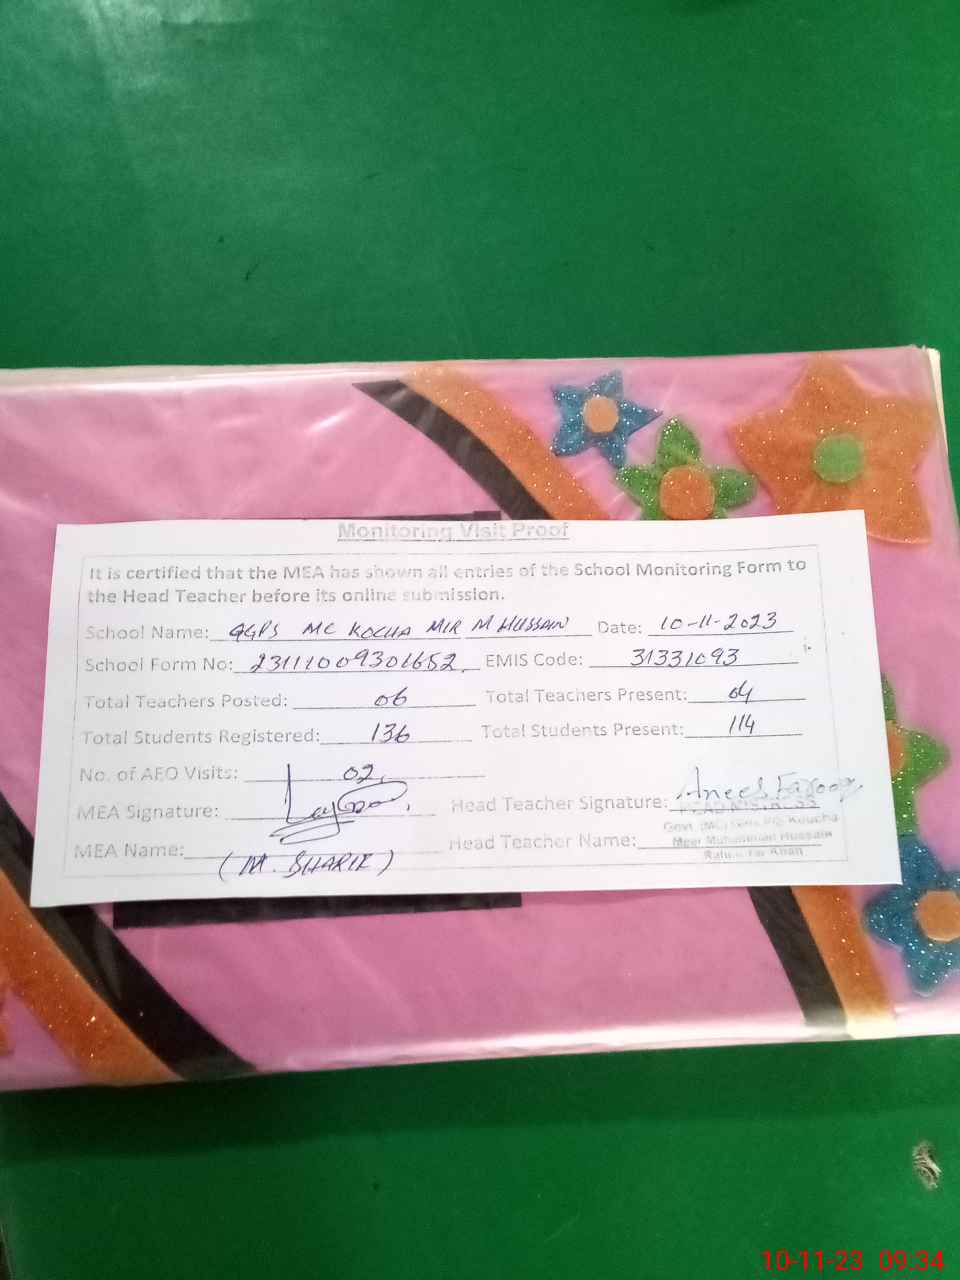 Monitoring Visit Proof
It is certified that the MEA has shown all entries of the School Monitoring Form to
the Head Teacher before its online submission.
School Name: GGPS MC KOCHA MIR M HUSSAIN Date: 10-11-2023
School Form No: 23111009301652 EMIS Code: 31331093
Total Teachers Posted: 06 Total Teachers Present: 04
Total Students Registered: 136 Total Students Present: 114
No. of AEO Visits: 02
MEA Signature: Head Teacher Signature: Anees Farooq
HEAD MISTRESS
Govt. (MC) Girls P/S Koucha
MEA Name: (M. SHARIF) Head Teacher Name: Meer Muhammad Hussain
Rahim Yar Khan
10-11-23 09:34